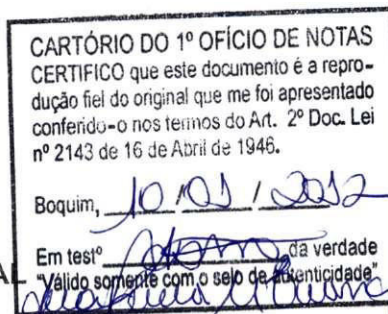 CARTÓRIO DO 1º OFÍCIO DE NOTAS
CERTIFICO que este documento é a repro-
dução fiel do original que me foi apresentado
conferido-o nos termos do Art. 2º Doc. Lei
nº 2143 de 16 de Abril de 1946.
Boquim, 10 / 01 / 2012
Em testº da verdade
AL "Válido somente com o selo de autenticidade"